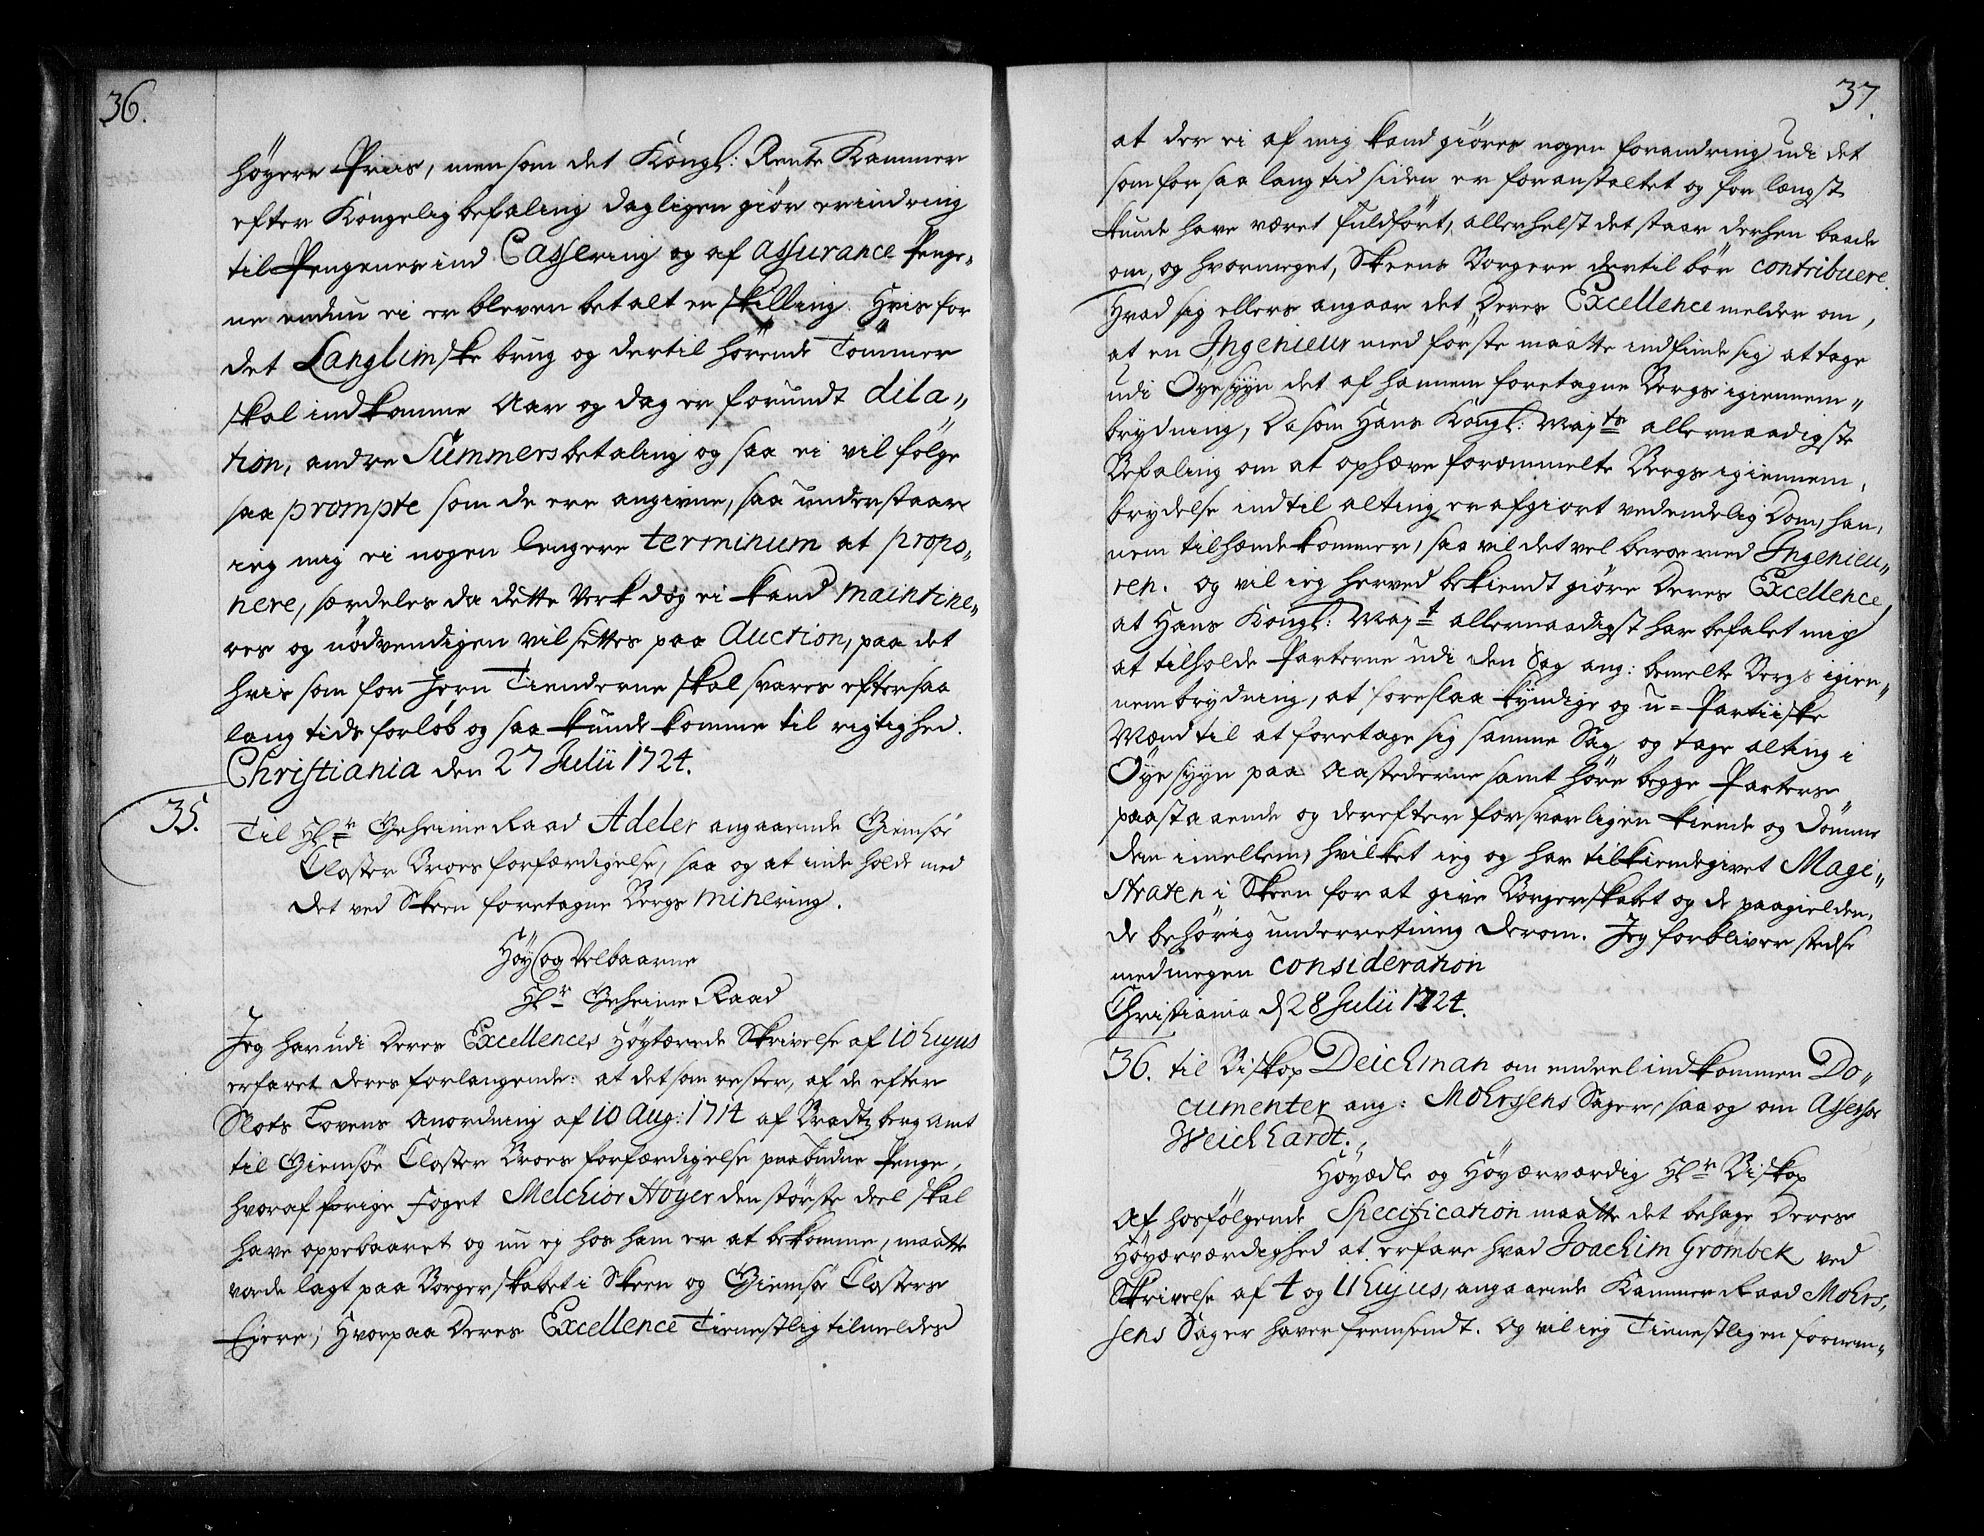 36.
höyere Priis, men som det Kongl: Rente Kammer
efter Kongelig befaling dagligen giör erindring
til Pengenes ind Cassering og af assurance Penge-
ne endnu ei er bleven betalt en skilling. Hvis for
det Langlimske brug og dertil hörende Tömmer
skal indkomme Aar og dag er forundt dila-
tion, andre Summers betaling og saa ei vil følge
saa prompte som de ere angivne, saa understaar
ieg mig ei nogen lengere terminum at propo-
nere, særdeles da dette Verk dog ei kand maintine-
res og nödvendigen vil settes paa Auction, paa det
hvis som for Jern Tienderne skal svares efter saa
lang tids forløb og saa kunde komme til rigtighed.
Christiania den 27 Julii 1724.
35. Til Hr Geheime Raad Adeler angaaende Giemsöe
Closter Broes forfærdigelse, saa og at inde holde med
det ved Skeen foretagne Bergs Minering.
Höy og Velbaarne
Hr Geheime Raad
Jeg har udi Deres Excellences Höytærede Skrivelse af 10 hujus
erfaret deres forlangende: at det som rester, af de efter
Slots Lovens Anordning af 10 Aug: 1714 af Bradtzberg amt
til Giemsöe Closter Broes forfærdigelse paabudne Penge,
hvoraf forige Foget Melchior Höyer den störste deel skal
have oppebaaret og nu ej hos ham er at bekomme, maatte
vorde lagt paa Borgerskabet i Skeen og Giemsöe Closters
Ejere; Hvorpaa Deres Excellence Tienestlig tilmeldes
37.
at der ei af mig kand giöres nogen forandring udi det
som for saa lang tid siden er foranstaltet og for længst
kunde have været fuldfört, allerhelst det staar derhen baade
om, og hvormeget, Skeens Borgere dertil bör contribuere.
Hvad sig ellers angaar det Deres Excellence melder om,
at en Ingenieur med förste maatte indfinde sig at tage
udi Öyesyyn det af hannem foretagne Bergs igiennem-
brydning, Da som Hans Kongl: Mayts allernaadigste
Befaling om at ophæve forommelte Bergs igiennem-
brydelse indtil alting er afgiort ved endelig Dom, han-
nem tilhænde kommer, saa vil det vel beroe med Ingenieu-
ren. og vil ieg herved bekiendt giöre Deres Excellence
at Hans Kongl: Mayt allernaadigst har befalet mig
at tilholde Parterne udi den Sag ang: bemelte Bergs igien-
nembrydning, at foreslaa kyndige og u-Partiiske
Mænd til at foretage sig samme Sag og tage alting i
Öyesyyn paa Aastederne samt höre begge Parters
paastaaende og derefter forsvarligen kiende og dömme
dem imellem, hvilket ieg og har tilkiendegivet Magi-
straten i Skeen for at give Borgerskabet og de paagielden-
de behörig underretning derom. Jeg forbliver stedse
med megen consideration
Christiania d 28 Julii 1724.
36. til Biskop Deichman om endeel indkommen Do-
cumenter ang: Mohrsens Sager, saa og om Assessor
Weichhardt.
Höyædle og Höyærværdig Hr Biskop
Af hosfölgende Specification maatte det behage Deres
Höyærværdighed at erfare hvad Joachim Grömbek ved
Skrivelse af 4 og 11 hujus, angaaende Kammer Raad Mohr-
sens Sager haver fremsendt. og vil ieg Tienestligen fornem-